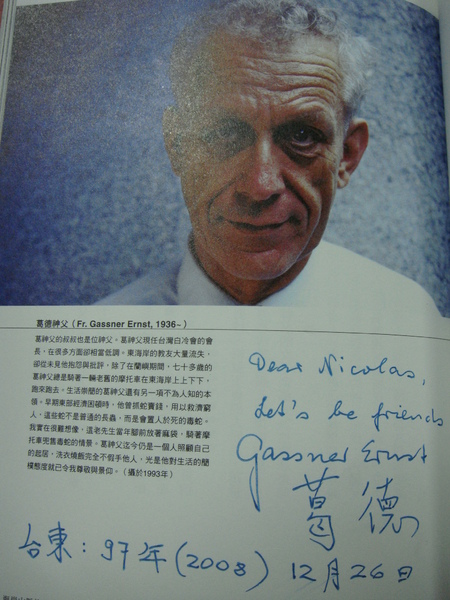 葛德神父(Fr. Gassner Ernst, 1936~)
葛神父的叔叔也是位神父。葛神父現任台灣白冷會的會
長，在很多方面卻相當低調。東海岸的教友大量流失，
卻從未見他抱怨與批評，除了在蘭嶼期間，七十多歲的
葛神父總是騎著一輛老舊的摩托車在東海岸上上下下，
跑來跑去。生活崇簡的葛神父還有另一項不為人知的本
領。早期東部經濟困頓時，他曾抓蛇賣錢，用以救濟窮
人，這些蛇不是普通的長蟲，而是會置人於死的毒蛇。
我實在很難想像，這老先生當年腳前放著麻袋，騎著摩
托車兜售毒蛇的情景。葛神父迄今仍是一個人照顧自己
的起居，洗衣燒飯完全不假手他人，光是他對生活的簡
樸態度就已令我尊敬與景仰。(攝於1993年)
Dear Nicolas,
Let's be friends
Gassner Ernst
葛德
台東：97年(2008) 12月26日